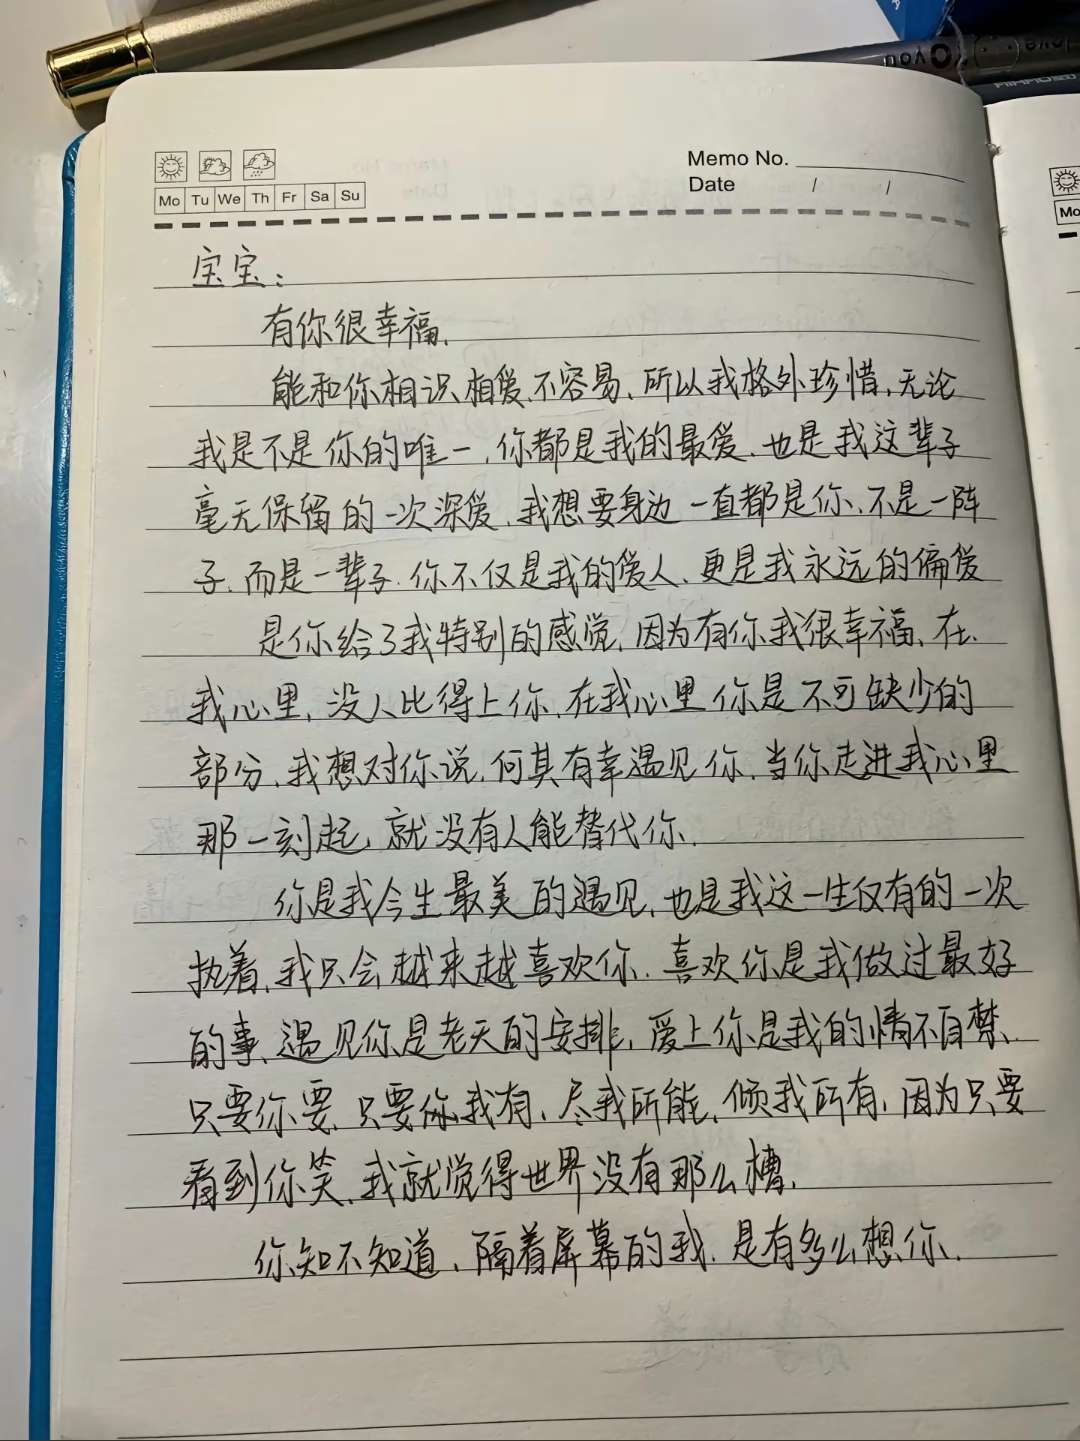 Memo No.
Date / /
Mo Tu We Th Fr Sa Su
Mo
宝宝:
有你很幸福.
能和你相识相爱.不容易、所以我格外珍惜,无论
我是不是你的唯一,你都是我的最爱.也是我这辈子
毫无保留的一次深爱,我想要身边一直都是你.不是一阵
子.而是一辈子.你不仅是我的爱人、更是我永远的偏爱
是你给了我特别的感觉,因为有你我很幸福、在.
我心里,没人比得上你.在我心里你是不可缺少的
部分.我想对你说,何其有幸遇见你.当你走进我心里
那一刻起,就没有人能替代你.
你是我今生最美的遇见,也是我这一生仅有的一次
执着,我只会越来越喜欢你.喜欢你是我做过最好
的事、遇见你是老天的安排,爱上你是我的情不自禁.
只要你要.只要你我有,尽我所能,倾我所有,因为只要
看到你笑,我就觉得世界没有那么糟.
你知不知道,隔着屏幕的我.是有多么想你.